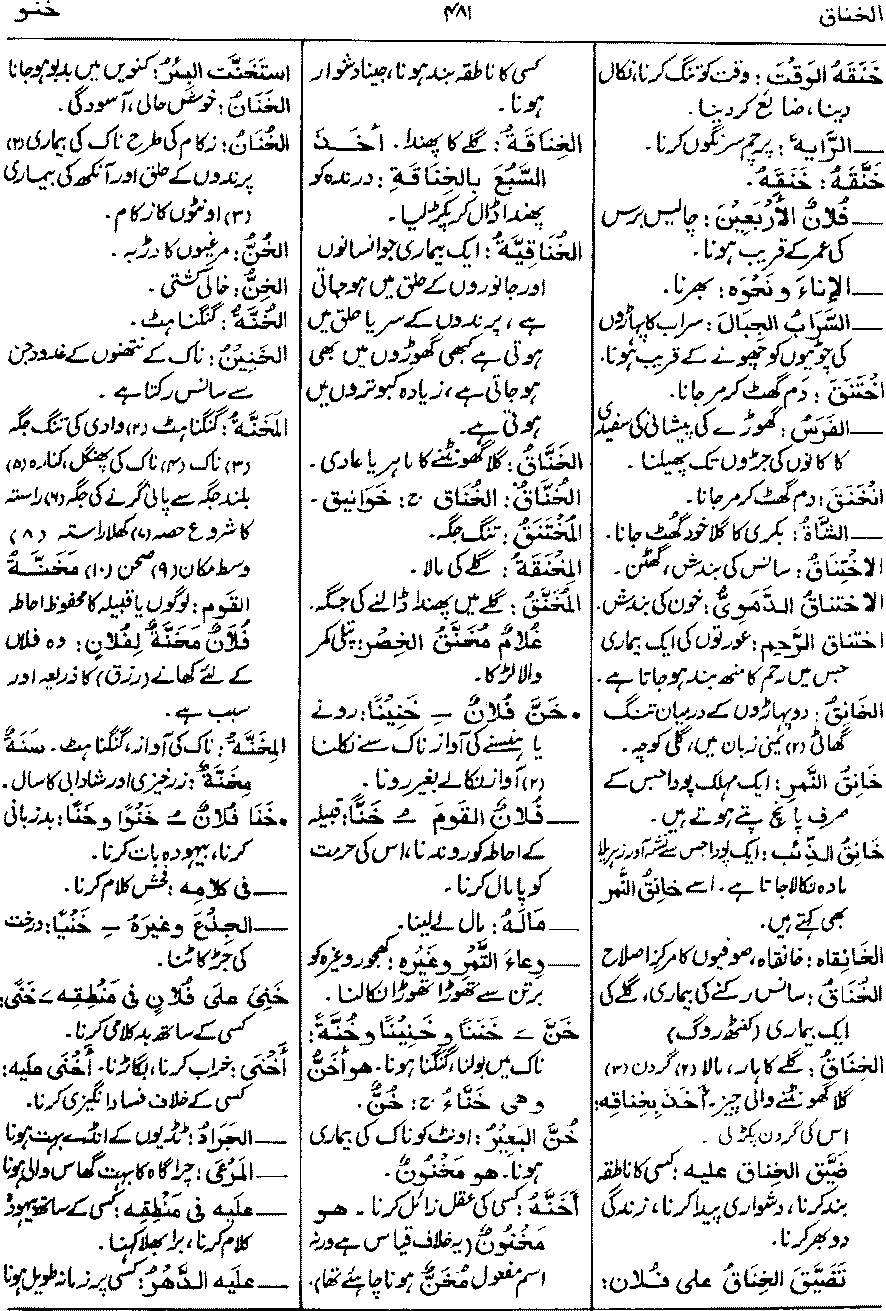 الخناق
۴۸۱
خنو
خَنَقَهُ الوَقْتَ: وقت کو تنگ کرنا، نکال
دینا، ضائع کر دینا۔
— الرَّايةَ: پرچم سرنگوں کرنا۔
خَنَّقَهُ: خَنَقَهُ۔
— فُلَانٌ الأَرْبَعِيْنَ: چالیس برس
کی عمر کے قریب ہونا۔
— الإناءَ و نَحْوَه: بھرنا۔
— السَّرَابُ الجِبَالَ: سراب کا پہاڑوں
کی چوٹیوں کو چھونے کے قریب ہونا۔
اخْتَنَقَ: دَم گھٹ کر مر جانا۔
— الفَرَسُ: گھوڑے کی پیشانی کی سفیدی
کا کانوں کی جڑوں تک پھیلنا۔
انْخَنَقَ: دم گھٹ کر مر جانا۔
— الشَّاةُ: بکری کا گلا خود گھُٹ جانا۔
الاخْتِنَاقُ: سانس کی بندش، گھٹن۔
الاختناقُ الدَّمَوِيُّ: خون کی بندش۔
اختناق الرَّحِم: عورتوں کی ایک بیماری
جس میں رحم کا منھ بند ہو جاتا ہے۔
الخَانِقُ: دو پہاڑوں کے درمیان تنگ
گھاٹی (۲) یمنی زبان میں، گلی کوچہ۔
خَانِقُ النَّمِر: ایک مہلک پودا جس کے
صرف پانچ پتے ہوتے ہیں۔
خَانِقُ الذِّئب: ایک پودا جس سے نشہ آور زہریلا
مادہ نکالا جاتا ہے۔ اسے خَانِقُ النَّمر
بھی کہتے ہیں۔
الخَانِقاه: خانقاہ، صوفیوں کا مرکزِ اصلاح
الخُنَاقُ: سانس رکنے کی بیماری، گلے کی
ایک بیماری (کنٹھ روگ)
الخِنَاقُ: گلے کا ہار، مالا (۲) گردن (۳)
گلا گھونٹنے والی چیز۔ أخَذَ بِخِناقِه:
اس کی گردن پکڑلی۔
ضَيَّقَ الخِناقَ عليه: کسی کا ناطقہ
بند کرنا، دشواری پیدا کرنا، زندگی
دوبھر کرنا۔
تَضَيَّقَ الخِنَاقُ على فلان:
کسی کا ناطقہ بند ہونا، جینا دشوار
ہونا۔
الخِنَاقَةُ: گلے کا پھندا۔ أخَذَ
السَّبُعَ بِالخِنَاقَةِ: درندہ کو
پھندا ڈال کر پکڑ لیا۔
الخُنَاقِيَّةُ: ایک بیماری جو انسانوں
اور جانوروں کے حلق میں ہو جاتی
ہے، پرندوں کے سر یا حلق میں
ہوتی ہے کبھی گھوڑوں میں بھی
ہو جاتی ہے، زیادہ کبوتروں میں
ہوتی ہے۔
الخَنَّاقُ: گلا گھونٹنے کا ماہر یا عادی۔
الخُنَّاقُ: الخُناق ج: خَوَانِيق۔
المُخْتَنَقُ: تنگ جگہ۔
المِخْنَقَةُ: گلے کی مالا۔
المُخَنَّقُ: گلے میں پھندا ڈالنے کی جگہ۔
غُلَامٌ مُخَنَّقُ الخِصْر: پتلی کمر
والا لڑکا۔
• خَنَّ فُلَانٌ ـِ خَنِيْنًا: رونے
یا ہنسنے کی آواز ناک سے نکلنا
(۲) آواز نکالے بغیر رونا۔
— فُلَانٌ القَوْمَ ـُ خَنًّا: قبیلہ
کے احاطہ کو روندنا، اس کی حرمت
کو پامال کرنا۔
— مَالَهُ: مال لے لینا۔
— وِعاءَ التَّمْرِ وغَيْرِه: کھجور وغیرہ کو
برتن سے تھوڑا تھوڑا نکالنا۔
خَنَّ ـَ خَنَنًا وخَنِيْنًا وخُنَّةً:
ناک میں بولنا، گنگنا ہونا۔ هو أَخَنُّ
وهي خَنَّاءُ ج: خُنٌّ۔
خُنَّ البَعِيْرُ: اونٹ کو ناک کی بیماری
ہونا۔ هو مَخْنُوْنٌ۔
أَخَنَّهُ: کسی کی عقل زائل کرنا۔ هو
مَخْنُونٌ (یہ خلاف قیاس ہے ورنہ
اسم مفعول مُخَنٌّ ہونا چاہئے تھا)۔
اسْتَخَنَّت البِئْرُ: کنویں میں بدبو ہو جانا
الخَنَانُ: خوش حالی، آسودگی۔
الخُنَانُ: زکام کی طرح ناک کی بیماری (۲)
پرندوں کے حلق اور آنکھ کی بیماری
(۳) اونٹوں کا زکام۔
الخُنُّ: مرغیوں کا دڑبہ۔
الخِنُّ: خالی کشتی۔
الخُنَّةُ: گنگناہٹ۔
الخَنِيْنُ: ناک کے نتھنوں کے غدود جن
سے سانس رکتا ہے۔
المَخَنَّةُ: گنگناہٹ (۲) وادی کی تنگ جگہ
(۳) ناک (۴) ناک کی پھنگل، کنارہ (۵)
بلند جگہ سے پانی گرنے کی جگہ (۶) راستہ
کا شروع حصہ (۷) کھلا راستہ (۸)
وسط مکان (۹) صحن (۱۰) مَخَنَّةُ
القَوم: لوگوں یا قبیلہ کا محفوظ احاطہ
فُلَانٌ مَخَنَّةٌ لِفُلَانٍ: وہ فلاں
کے لئے کھانے (رزق) کا ذریعہ اور
سبب ہے۔
المِخَنَّةُ: ناک کی آواز، گنگناہٹ۔ سَنَةٌ
مِخَنَّةٌ: زرخیزی اور شادابی کا سال۔
• خَنَا فُلَانٌ ـُ خَنْوًا وخَنًا: بدزبانی
کرنا، بیہودہ بات کرنا۔
— في كلامِه: فحش کلام کرنا۔
— الجِذْعَ وغيرَهُ ـِ خَنْيًا: درخت
کی جڑ کاٹنا۔
خَنِيَ على فُلَانٍ في مَنْطِقِه ـَ خَنًى:
کسی کے ساتھ بد کلامی کرنا۔
أَخْنَى: خراب کرنا، بگاڑنا۔ أَخْنَى عليه:
کسی کے خلاف فساد انگیزی کرنا۔
— الجَرادُ: ٹڈیوں کے انڈے بہت ہونا
— المَرْعَى: چراگاہ کا بہت گھاس والی ہونا
— عليه في مَنْطِقِه: کسی کے ساتھ بیہودہ
کلام کرنا، برا بھلا کہنا۔
— عليه الدَّهْرُ: کسی پر زمانہ طویل ہونا